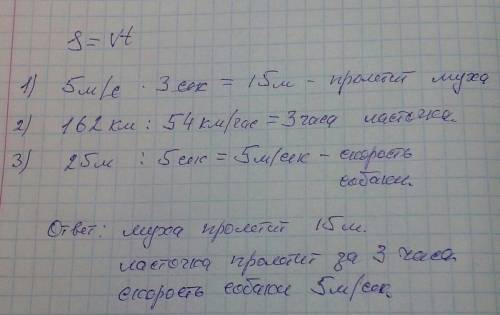 S = Vt
1) 5м/с · 3 сек = 15м - пролетит муха
2) 162 км : 54 км/час = 3 часа ласточка.
3) 25м : 5 сек = 5м/сек - скорость
собаки.
Ответ: муха пролетит 15м.
ласточка пролетит за 3 часа.
скорость собаки 5м/сек.